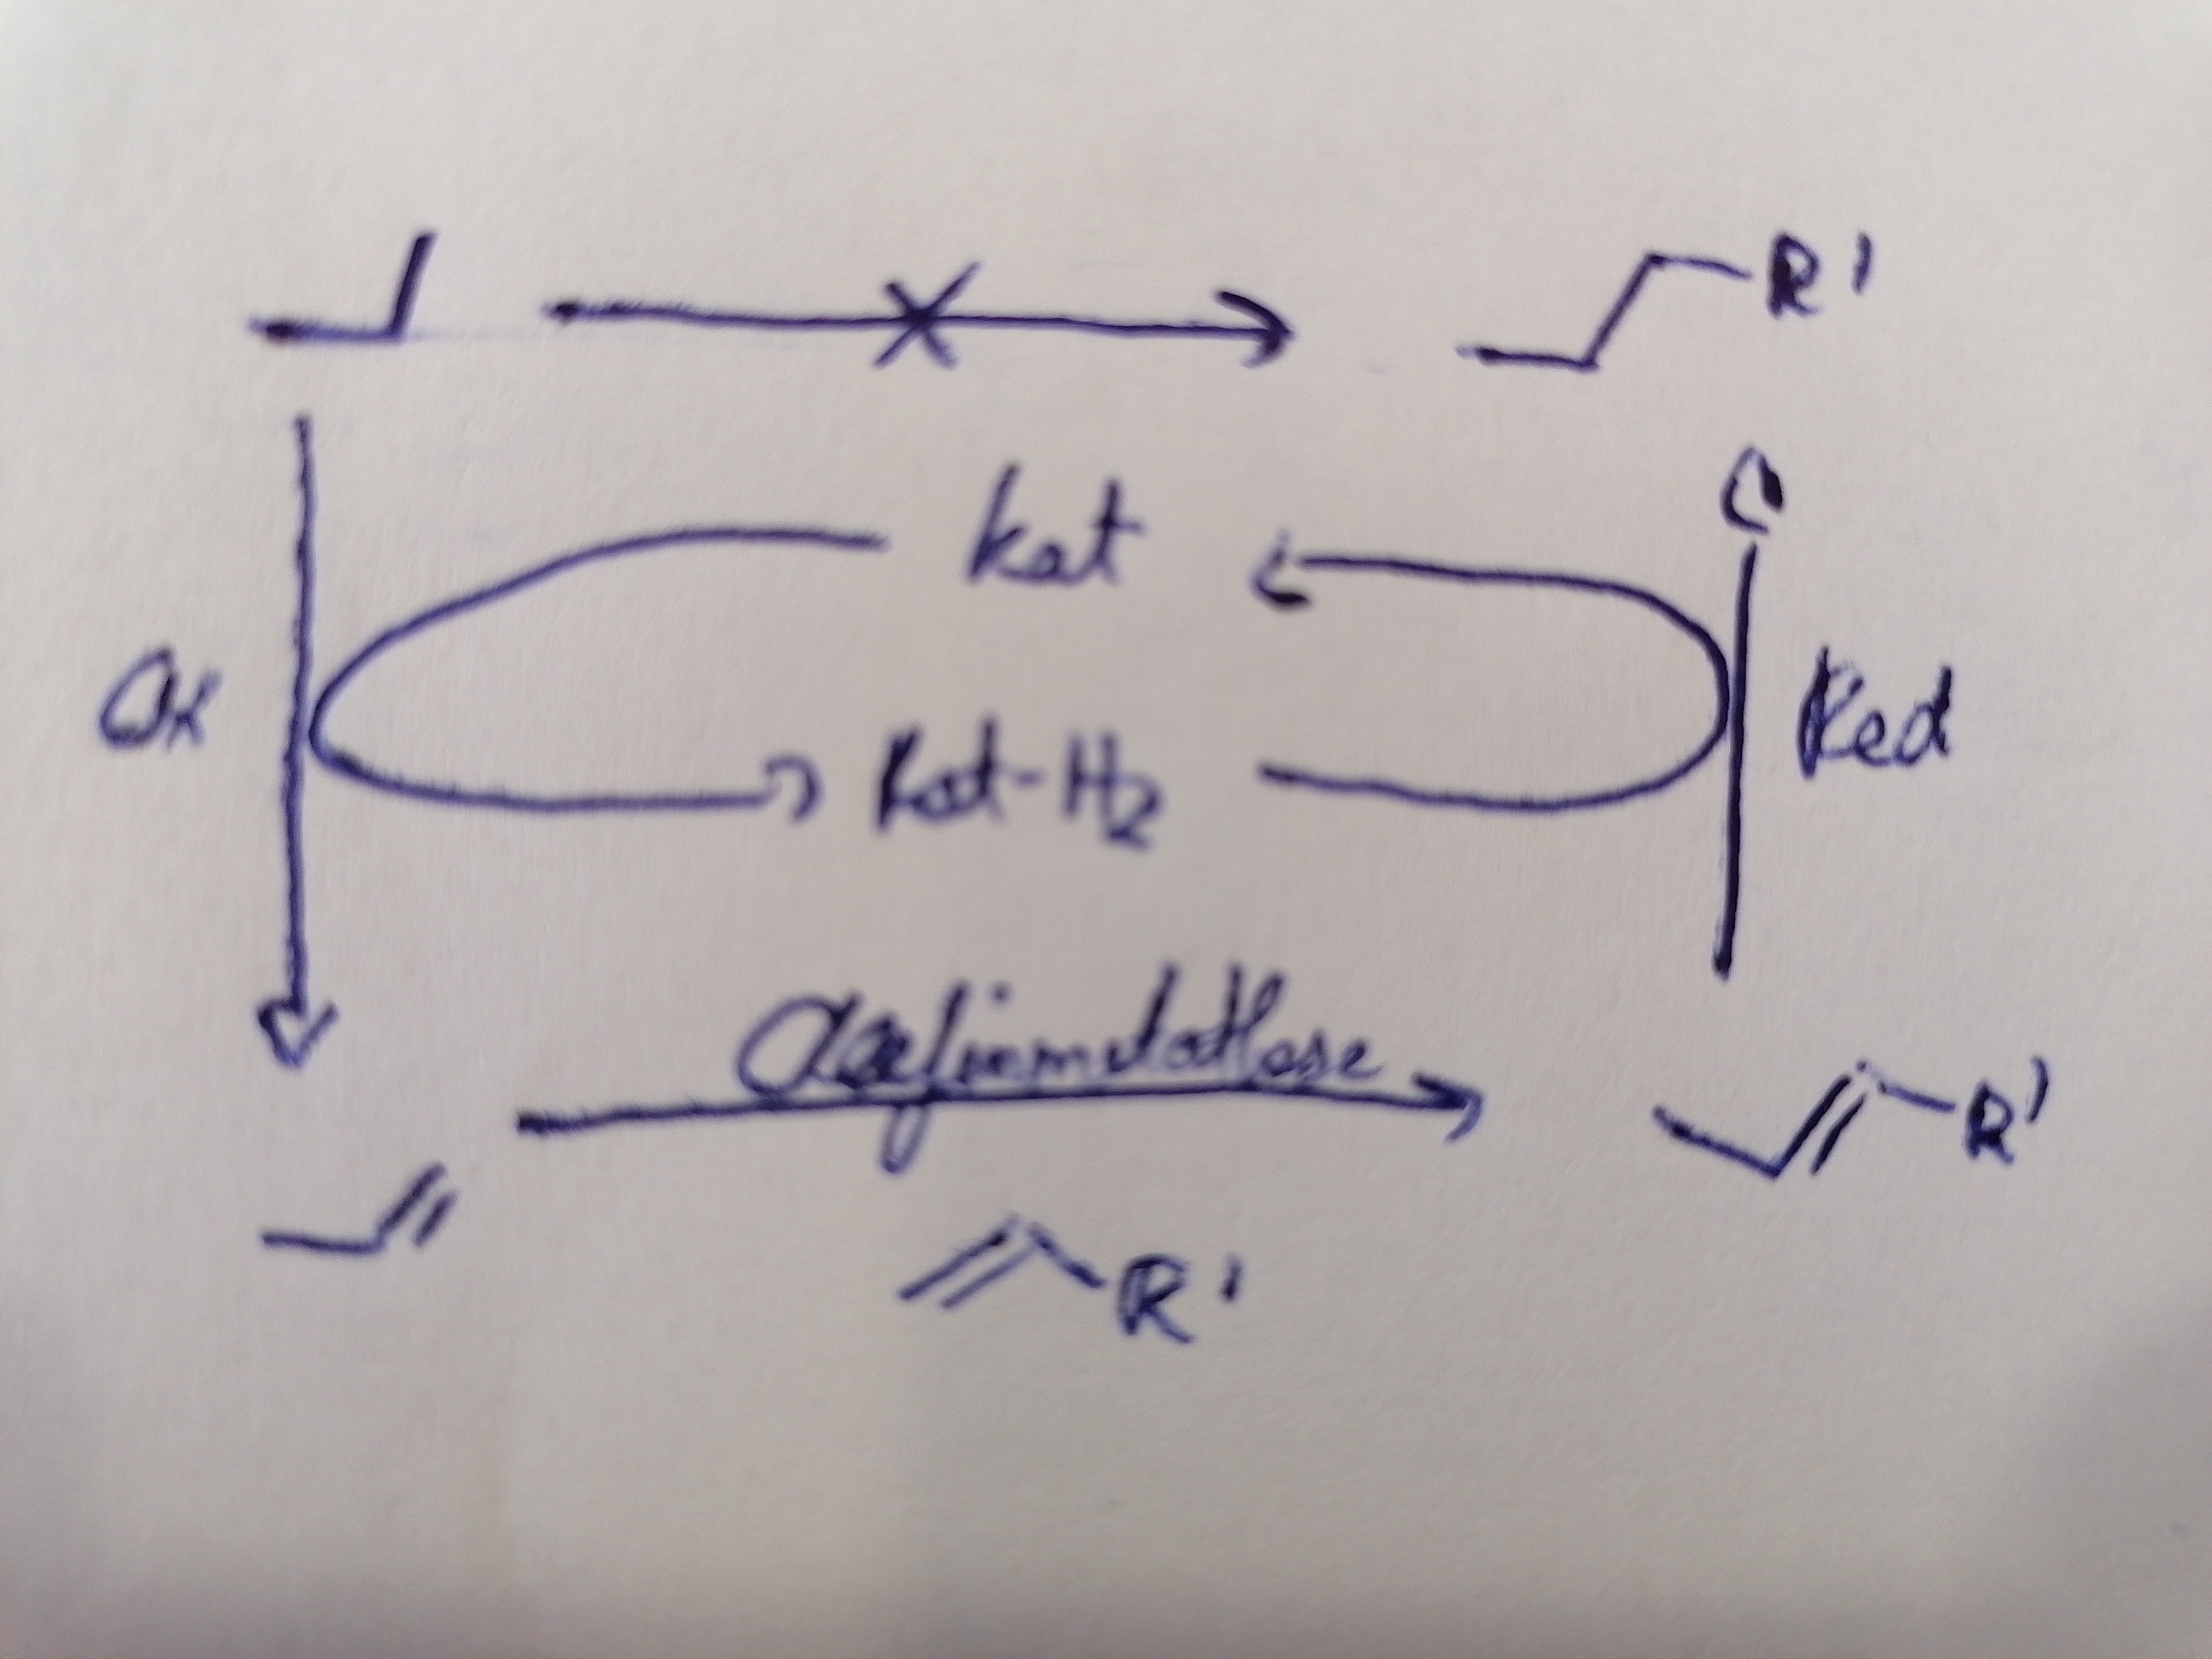 R'
kat
Ox
Red
Kat-H2
Olefinmetathese
R'
R'